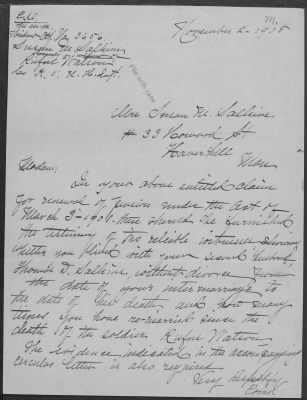 November 2-1915
No. 3656
Susan M. Sallins
Rufus Watson
Co. K, 5, N.H. Inft.
Mrs. Susan M. Sallins
# 33 Howard St
Haverhill
Mass
Madam:
In your above entitled claim
for renewal of pension under the Act of
March 3-1901, there should be furnished
the testimony of two reliable witnesses showing
whether you lived with your second husband,
Thomas D. Sallins, without divorce from
the date of your intermarriage to
the date of his death, and how many
times you have re-married since the
death of the soldier, Rufus Watson
The evidence indicated in the accompanying
circular letter is also required
Very respectfully